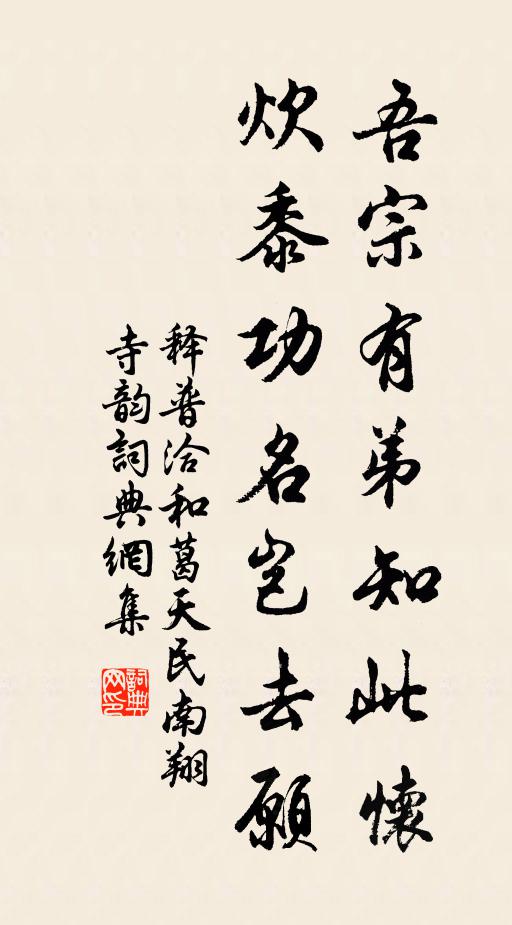 吾宗有弟知此懷
炊黍功名豈去願
释普洽和葛天民南翔
寺韵詞典網集
詞典网印